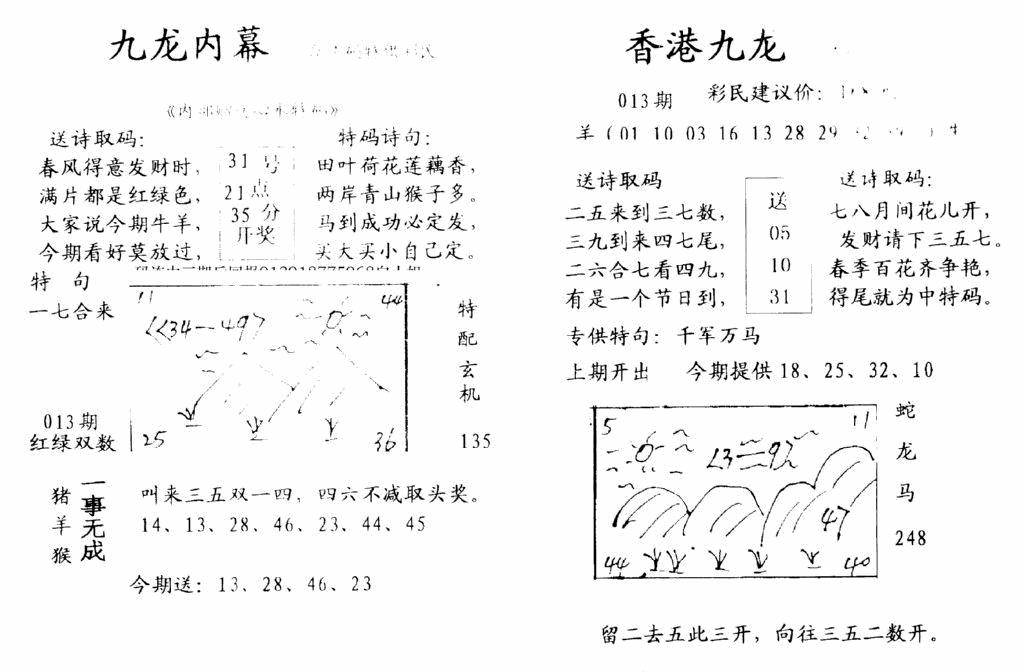 九龙内幕
送诗取码：
春风得意发财时，
满片都是红绿色，
大家说今期牛羊，
今期看好莫放过，
31号
21点
35分
开奖
特码诗句：
田叶荷花莲藕香，
两岸青山猴子多。
马到成功必定发，
买大买小自己定。
特句
一七合来
013期
红绿双数
11
44
《34—49》
25
36
特
配
玄
机
135
猪
羊
猴
一事无成
叫来三五双一四，四六不减取头奖。
14、13、28、46、23、44、45
今期送：13、28、46、23
香港九龙
013期 彩民建议价：
羊（01 10 03 16 13 28 29
送诗取码
二五来到三七数，
三九到来四七尾，
二六合七看四九，
有是一个节日到，
送
05
10
31
送诗取码：
七八月间花儿开，
发财请下三五七。
春季百花齐争艳，
得尾就为中特码。
专供特句：千军万马
上期开出 今期提供18、25、32、10
5
11
47
44
40
蛇
龙
马
248
留二去五此三开，向往三五二数开。